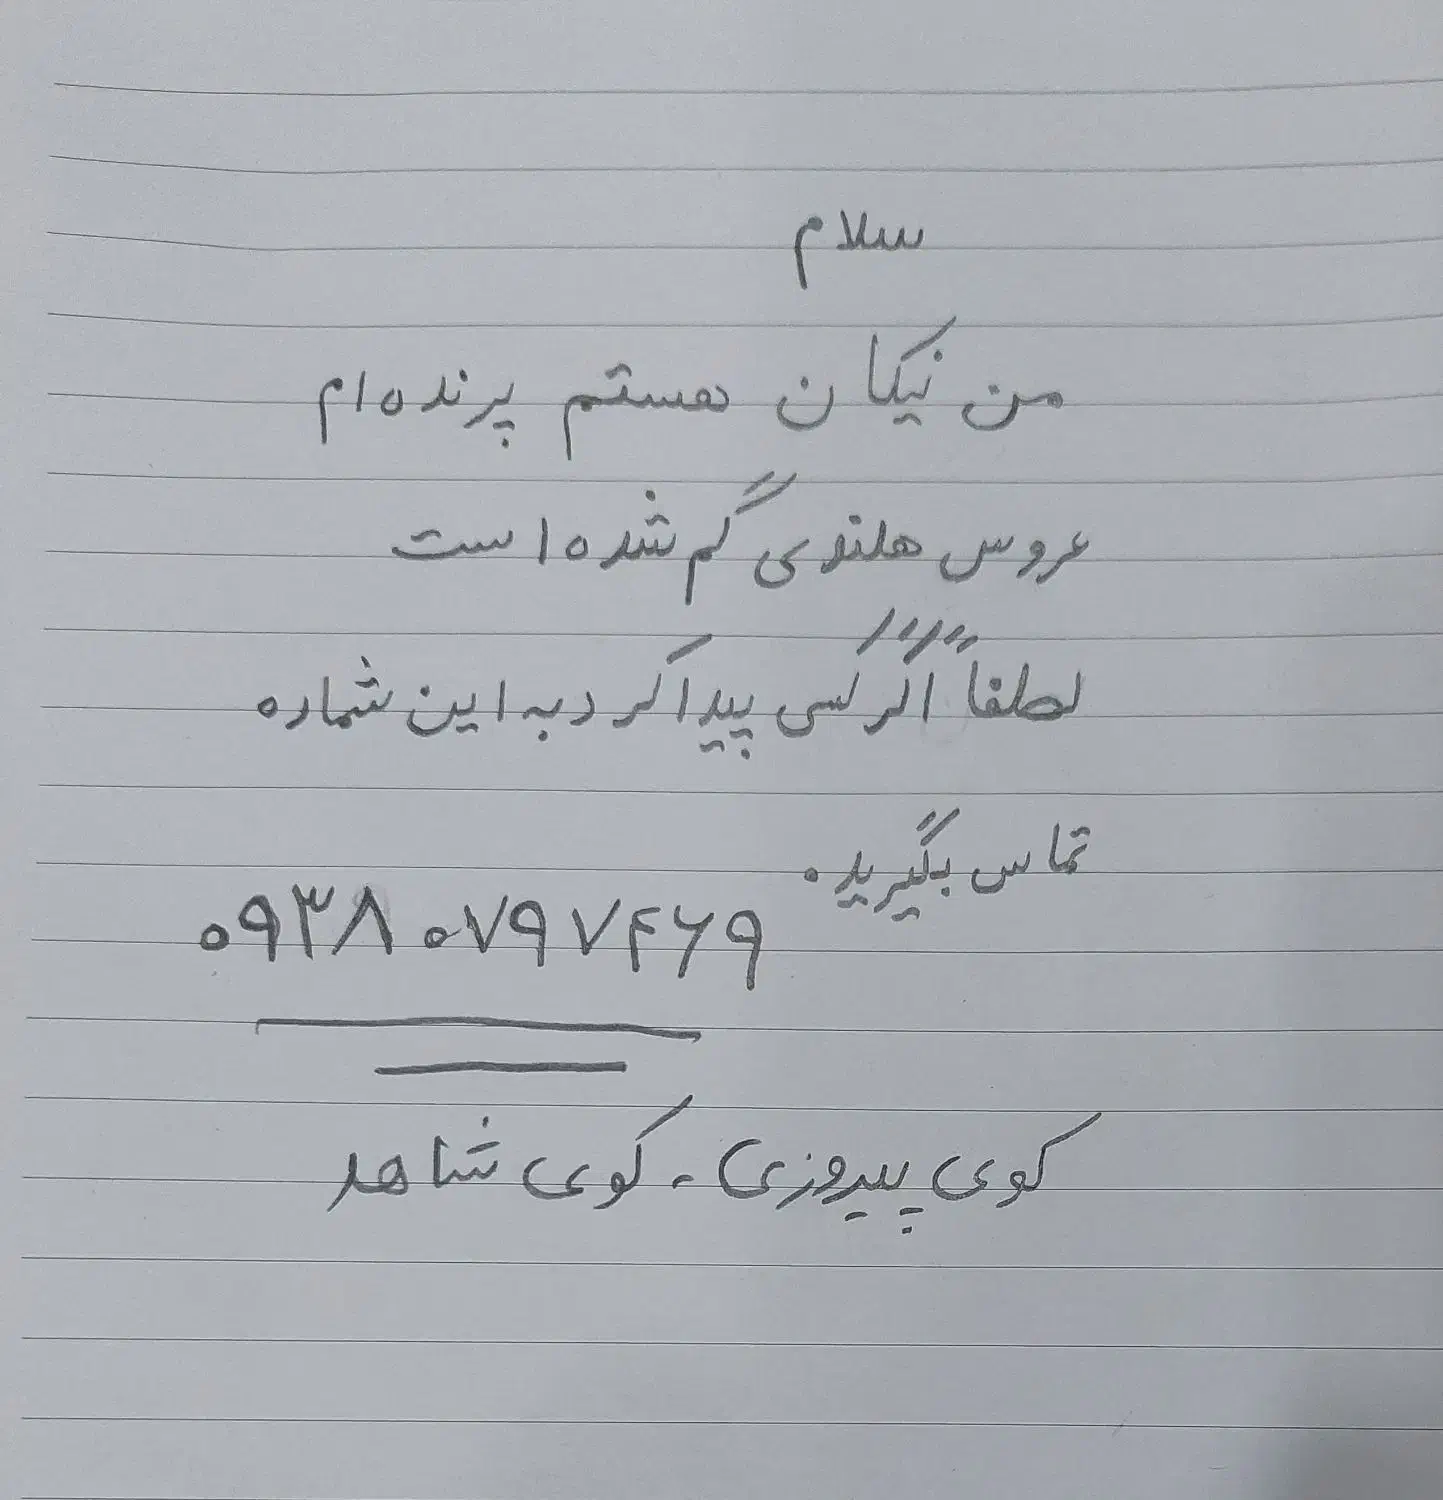 سلام
من نیکان هستم پرنده ام
عروس هلندی گم شده است
لطفاً اگر کسی پیدا کرد به این شماره
تماس بگیرید.
۰۹۳۸۰۷۹۷۴۶۹
کوی پیروزی - کوی شاهد